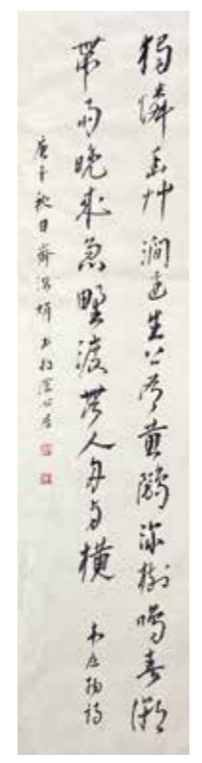 獨憐幽艸澗邊生上有黃鸝深樹鳴春潮
帶雨晚來急野渡無人舟自橫 韋應物詩
庚子秋日